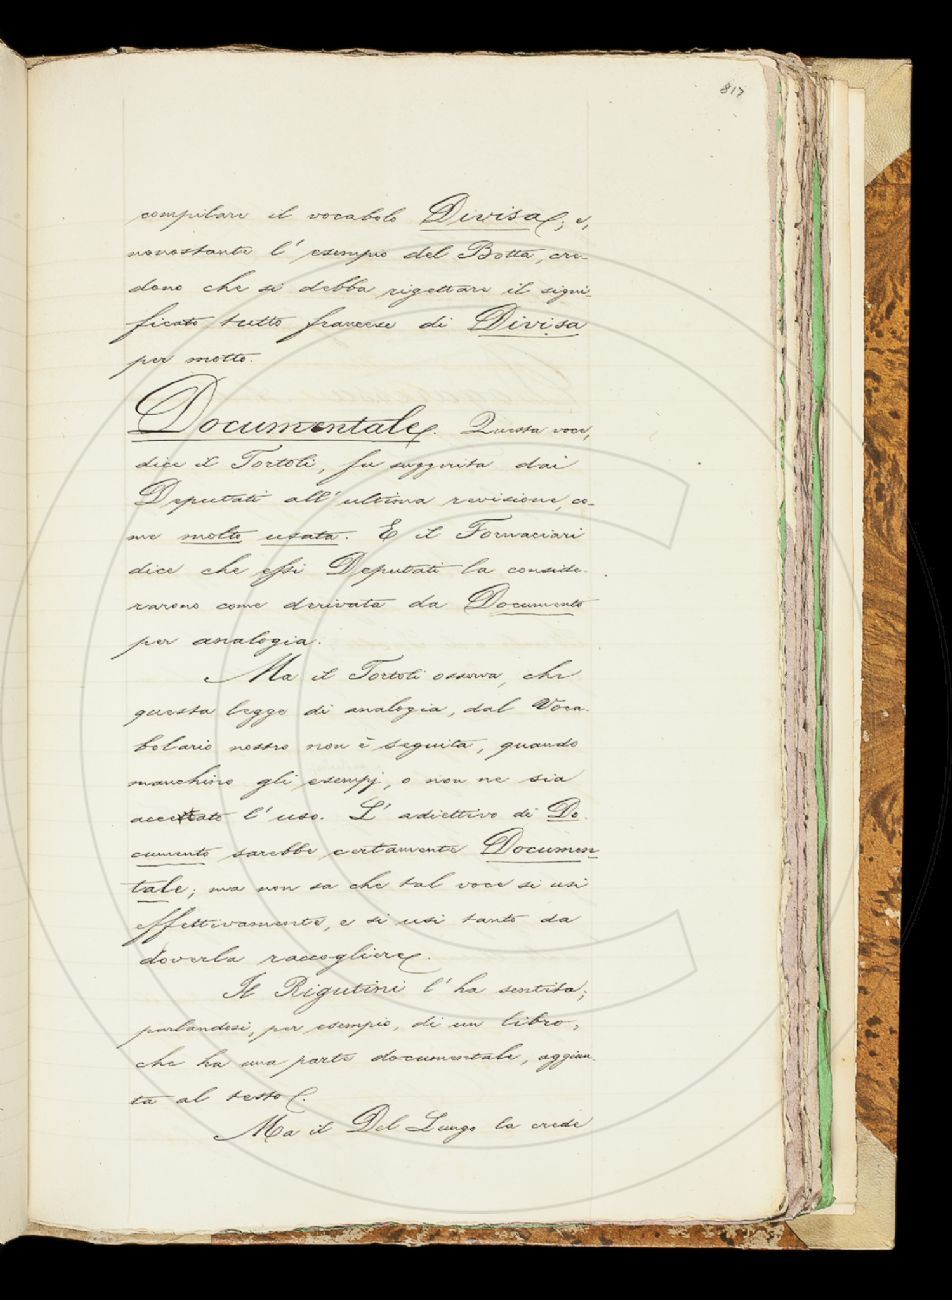 817
compilare il vocabolo Divisa; e,
nonostante l'esempio del Botta, cre-
dono che si debba rigettare il signi-
ficato tutto francese di Divisa
per motto.
Documentale. Questa voce,
dice il Tortoli, fu suggerita dai
Deputati all'ultima revisione, co-
me molto usata. E il Fornaciari
dice che essi Deputati la conside-
rarono come derivata da Documento
per analogia.
Ma il Tortoli osserva, che
questa legge di analogia, dal Voca-
bolario nostro non è seguita, quando
manchino gli esempj, o non ne sia
accertato l'uso. L'adiettivo di Do-
cumento sarebbe certamente Documen-
tale; ma non sa che tal voce si usi
effettivamente, e si usi tanto da
doverla raccogliere.
Il Rigutini l'ha sentita;
parlandosi, per esempio, di un libro,
che ha una parte documentale, aggiun-
ta al testo.
Ma il Del Lungo la crede